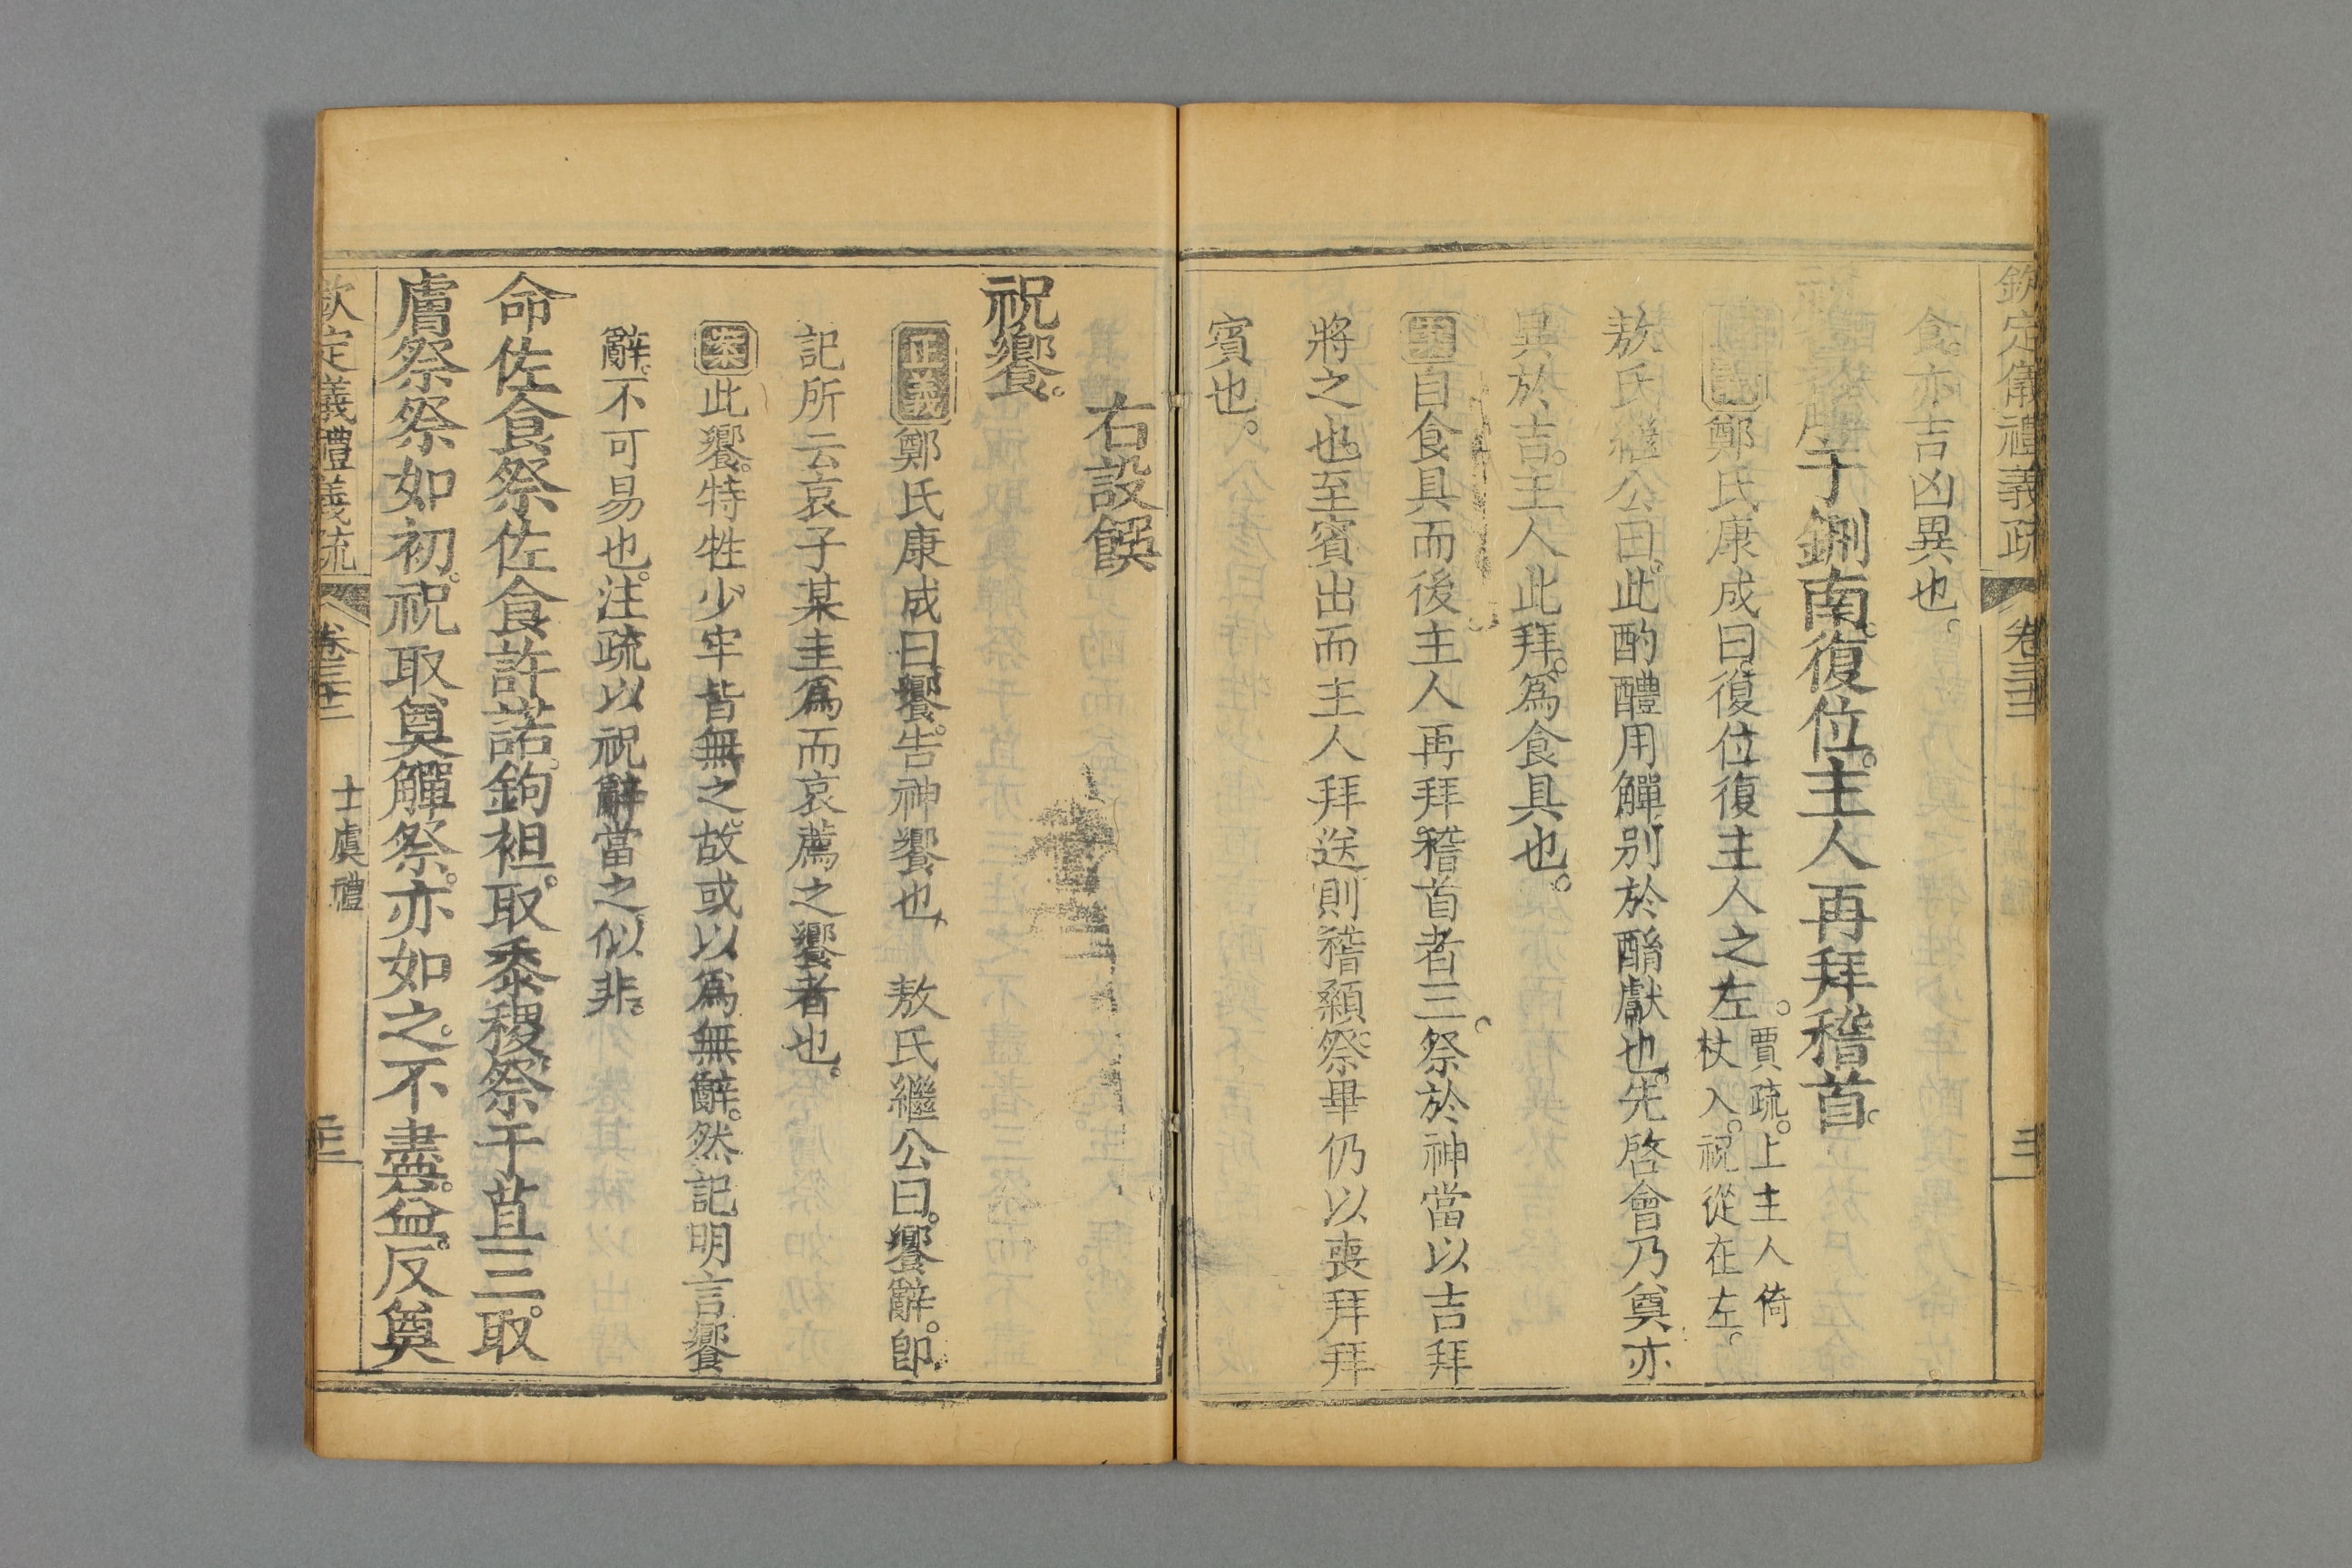 欽定儀禮義疏 卷三十二
食。亦吉凶異也。
于鉶南。復位。主人再拜稽首。
鄭氏康成曰。復位。復主人之左。賈疏。上主人倚杖入。祝從在左。
敖氏繼公曰。此酌醴用觶。別於酳獻也。先啓會乃奠。亦
異於吉。主人此拜。爲食具也。
案自食具而後主人再拜稽首者三。祭於神當以吉拜
將之也。至賓出而主人拜送則稽顙。祭畢仍以喪拜拜
賓也。
右設饌
祝饗。
正義鄭氏康成曰。饗。告神饗也。 敖氏繼公曰。饗辭。卽
記所云哀子某圭爲而哀薦之饗者也。
案此饗。特牲少牢皆無之。故或以爲無辭。然記明言饗
辭。不可易也。注疏以祝辭當之。似非。
命佐食祭。佐食許諾。鉤袒。取黍稷。祭于苴三。取
膚祭。祭如初。祝取奠觶祭。亦如之。不盡。益。反奠
欽定儀禮義疏 卷三十二 士虞禮